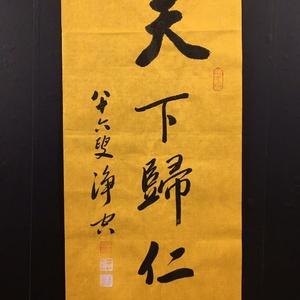 天下歸仁
八十六叟淨空